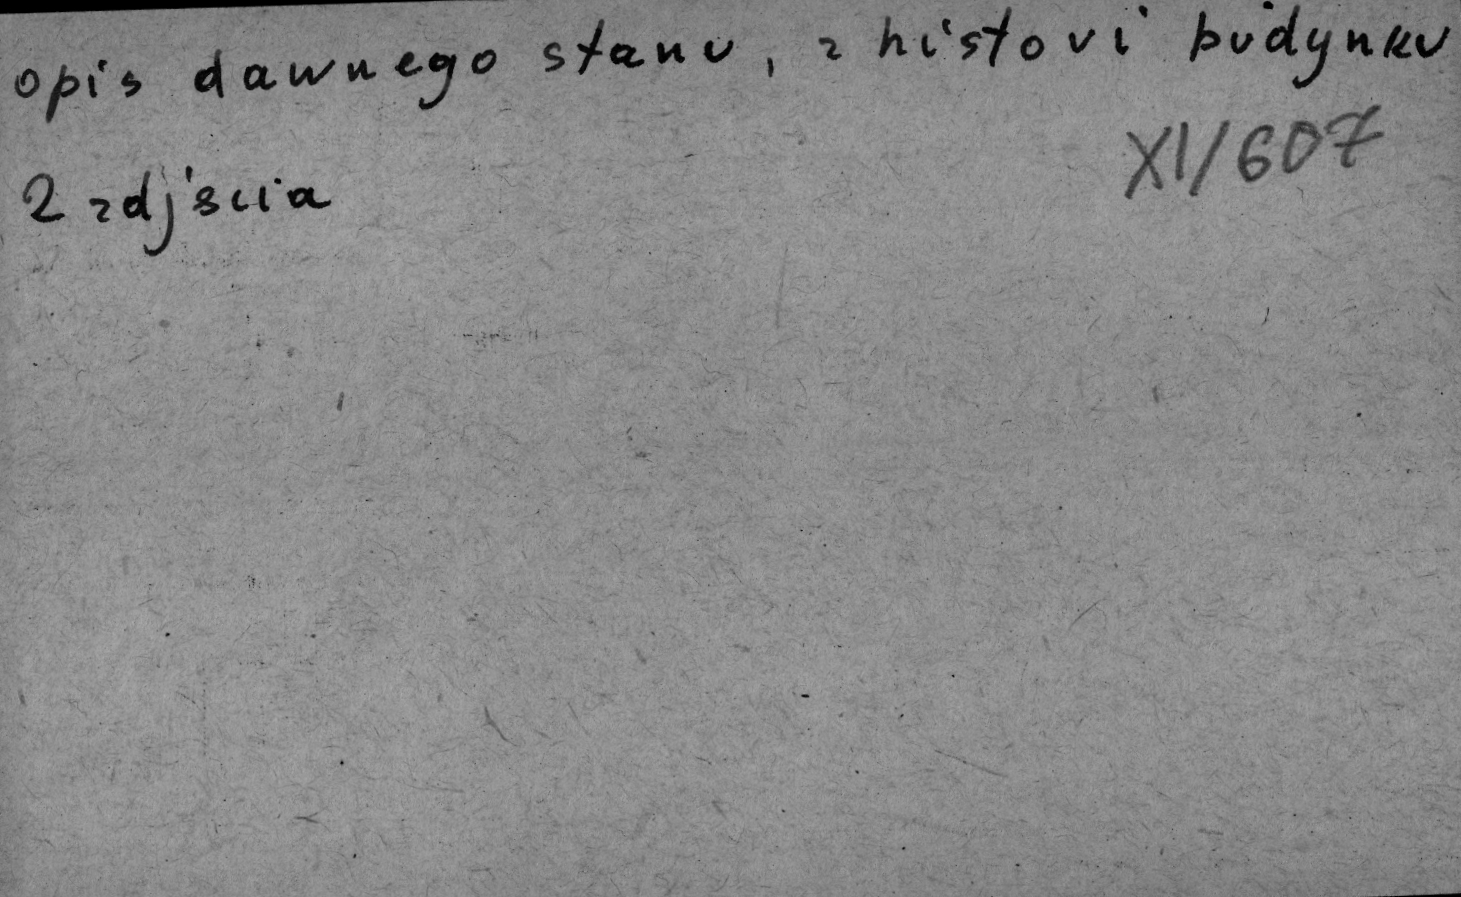 opis dawnego stanu, z histori budynku
XI/607
2 zdjścia